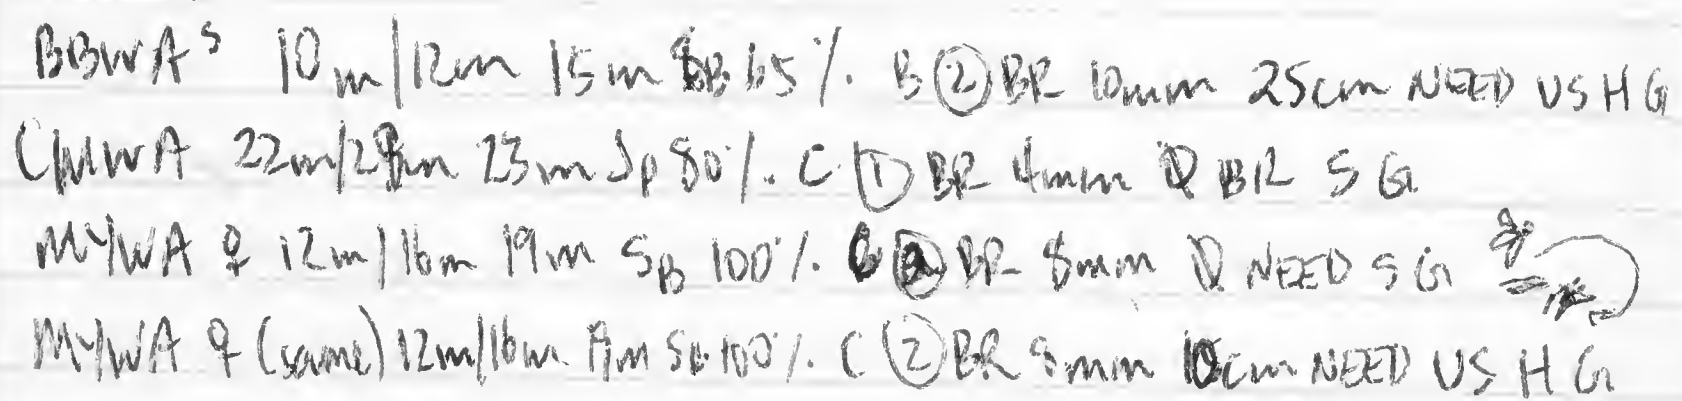 BBWA s 10m/12m 15m SB 65%. B ② BR 10mm 25cm NEED US H G
CMWA 22m/28m 23m Sp 80%. C ① BR 4mm D BR S G
MYWA ♀ 12m/16m 19m SB 100%. B ② BR 8mm D NEED S G
MYWA ♀ (same) 12m/16m 19m SB 100%. C ② BR 8mm 10cm NEED US H G